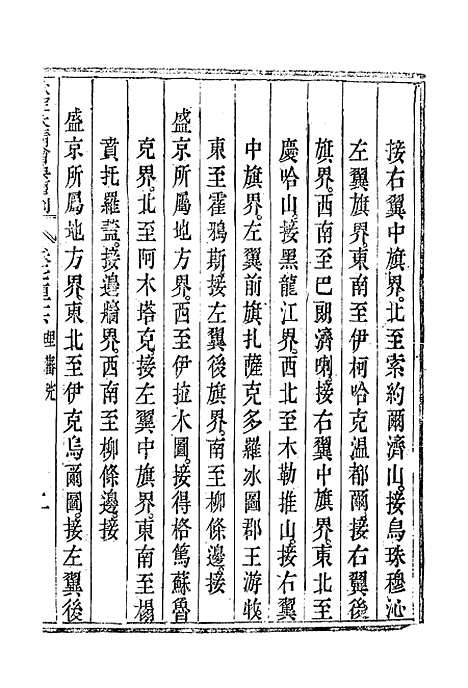 接右翼中旗界。北至索約爾濟山。接烏珠穆沁
左翼旗界。東南至伊柯哈克溫都爾。接右翼後
旗界。西南至巴朗濟喇。接右翼中旗界。東北至
慶哈山。接黑龍江界。西北至木勒推山。接右翼
中旗界。左翼前旗扎薩克多羅冰圖郡王游牧
東至霍鴉斯。接左翼後旗界。南至柳條邊。接
盛京所屬地方界。西至伊拉木圖。接得格篤蘇魯
克界。北至阿木塔克。接左翼中旗界。東南至楊
賁托羅蓋。接邊牆界。西南至柳條邊。接
盛京所屬地方界。東北至伊克烏爾圖。接左翼後
大清會典事例
理藩院